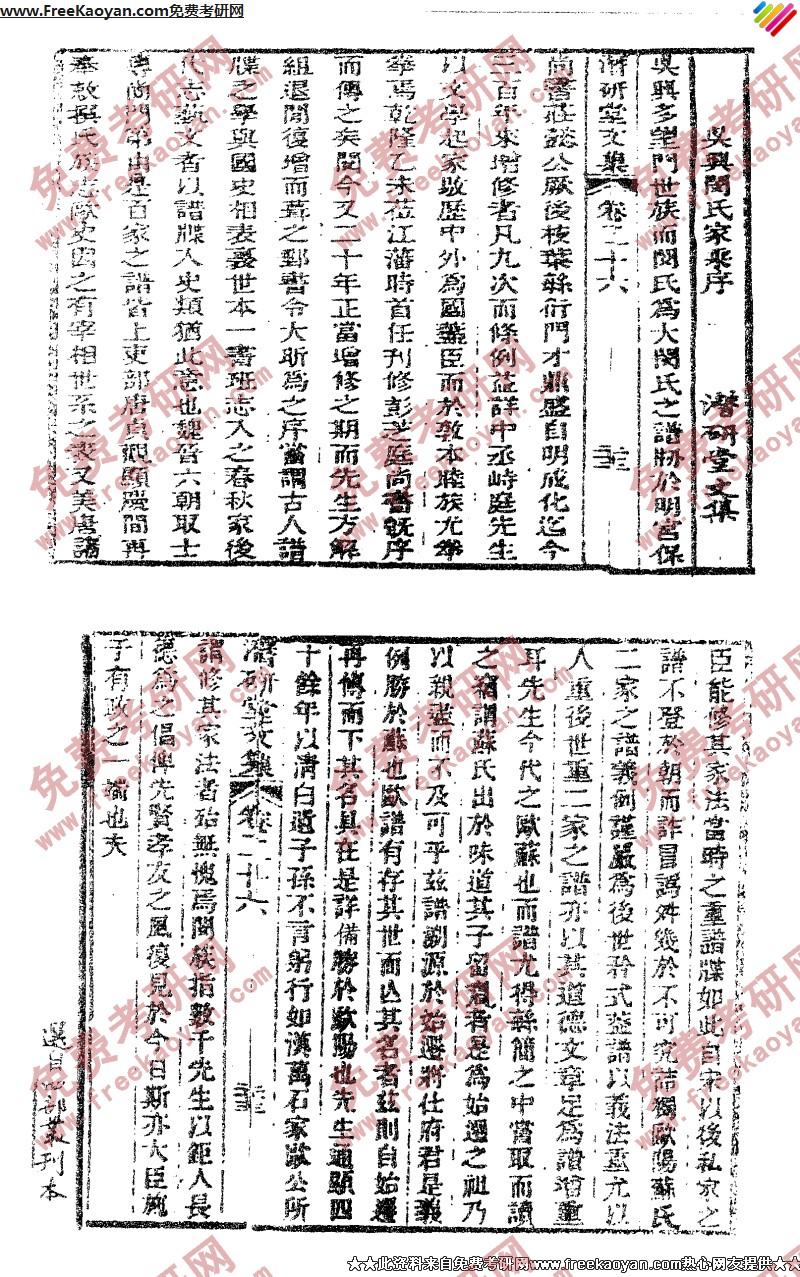 www.FreeKaoyan.com免费考研网
吳興閔氏家乘序
潛研堂文集
吳興多望門世族而閔氏為大閔氏之譜剏於明宮保
潛研堂文集 卷二十六
尚書莊懿公厥後枝葉緐衍門才鼎盛自明成化迄今
三百年來增修者凡九次而條例益詳中丞峙庭先生
以文學起家敭歷中外為國藎臣而於敦本睦族尤拳
拳焉乾隆乙未莅江藩時首任刊修彭芝庭尚書既序
而傳之矣閱今又二十年正當增修之期而先生方解
組退閒復增而葺之郵書令大昕為之序嘗謂古人譜
牒之學與國史相表裏世本一書班志入之春秋家後
代志藝文者以譜牒入史類猶此意也魏晉六朝取士
專尚門第由是百家之譜皆上吏部唐貞觀顯慶間再
奉敕撰氏族志歐史因之有宰相世系之表又美唐諸
臣能修其家法當時之重譜牒如此自宋以後私家之
譜不登於朝而詐冒譌舛幾於不可究詰獨歐陽蘇氏
二家之譜義例謹嚴為後世矜式葢譜以義法重尤以
人重後世重二家之譜亦以其道德文章足為譜增重
耳先生今代之歐蘇也而譜尤得緐簡之中嘗取而讀
之竊謂蘇氏出於味道其子留眉者是為始遷之祖乃
以親盡而不及可乎茲譜溯源於始遷將仕府君是義
例勝於蘇也歐譜有存其世而亾其名者茲則自始遷
再傳而下其名具在是詳備勝於歐陽也先生通顯四
十餘年以清白遺子孫不言躬行如漢萬石家歐公所
潛研堂文集 卷二十六
謂修其家法者殆無愧焉閔族指數千先生以鉅人長
德為之倡俾先賢孝友之風復見於今日斯亦大臣施
于有政之一端也夫
選自四部叢刊本
★★此资料来自免费考研网www.freekaoyan.com热心网友提供★★
免费考研网
www.freekaoyan.com